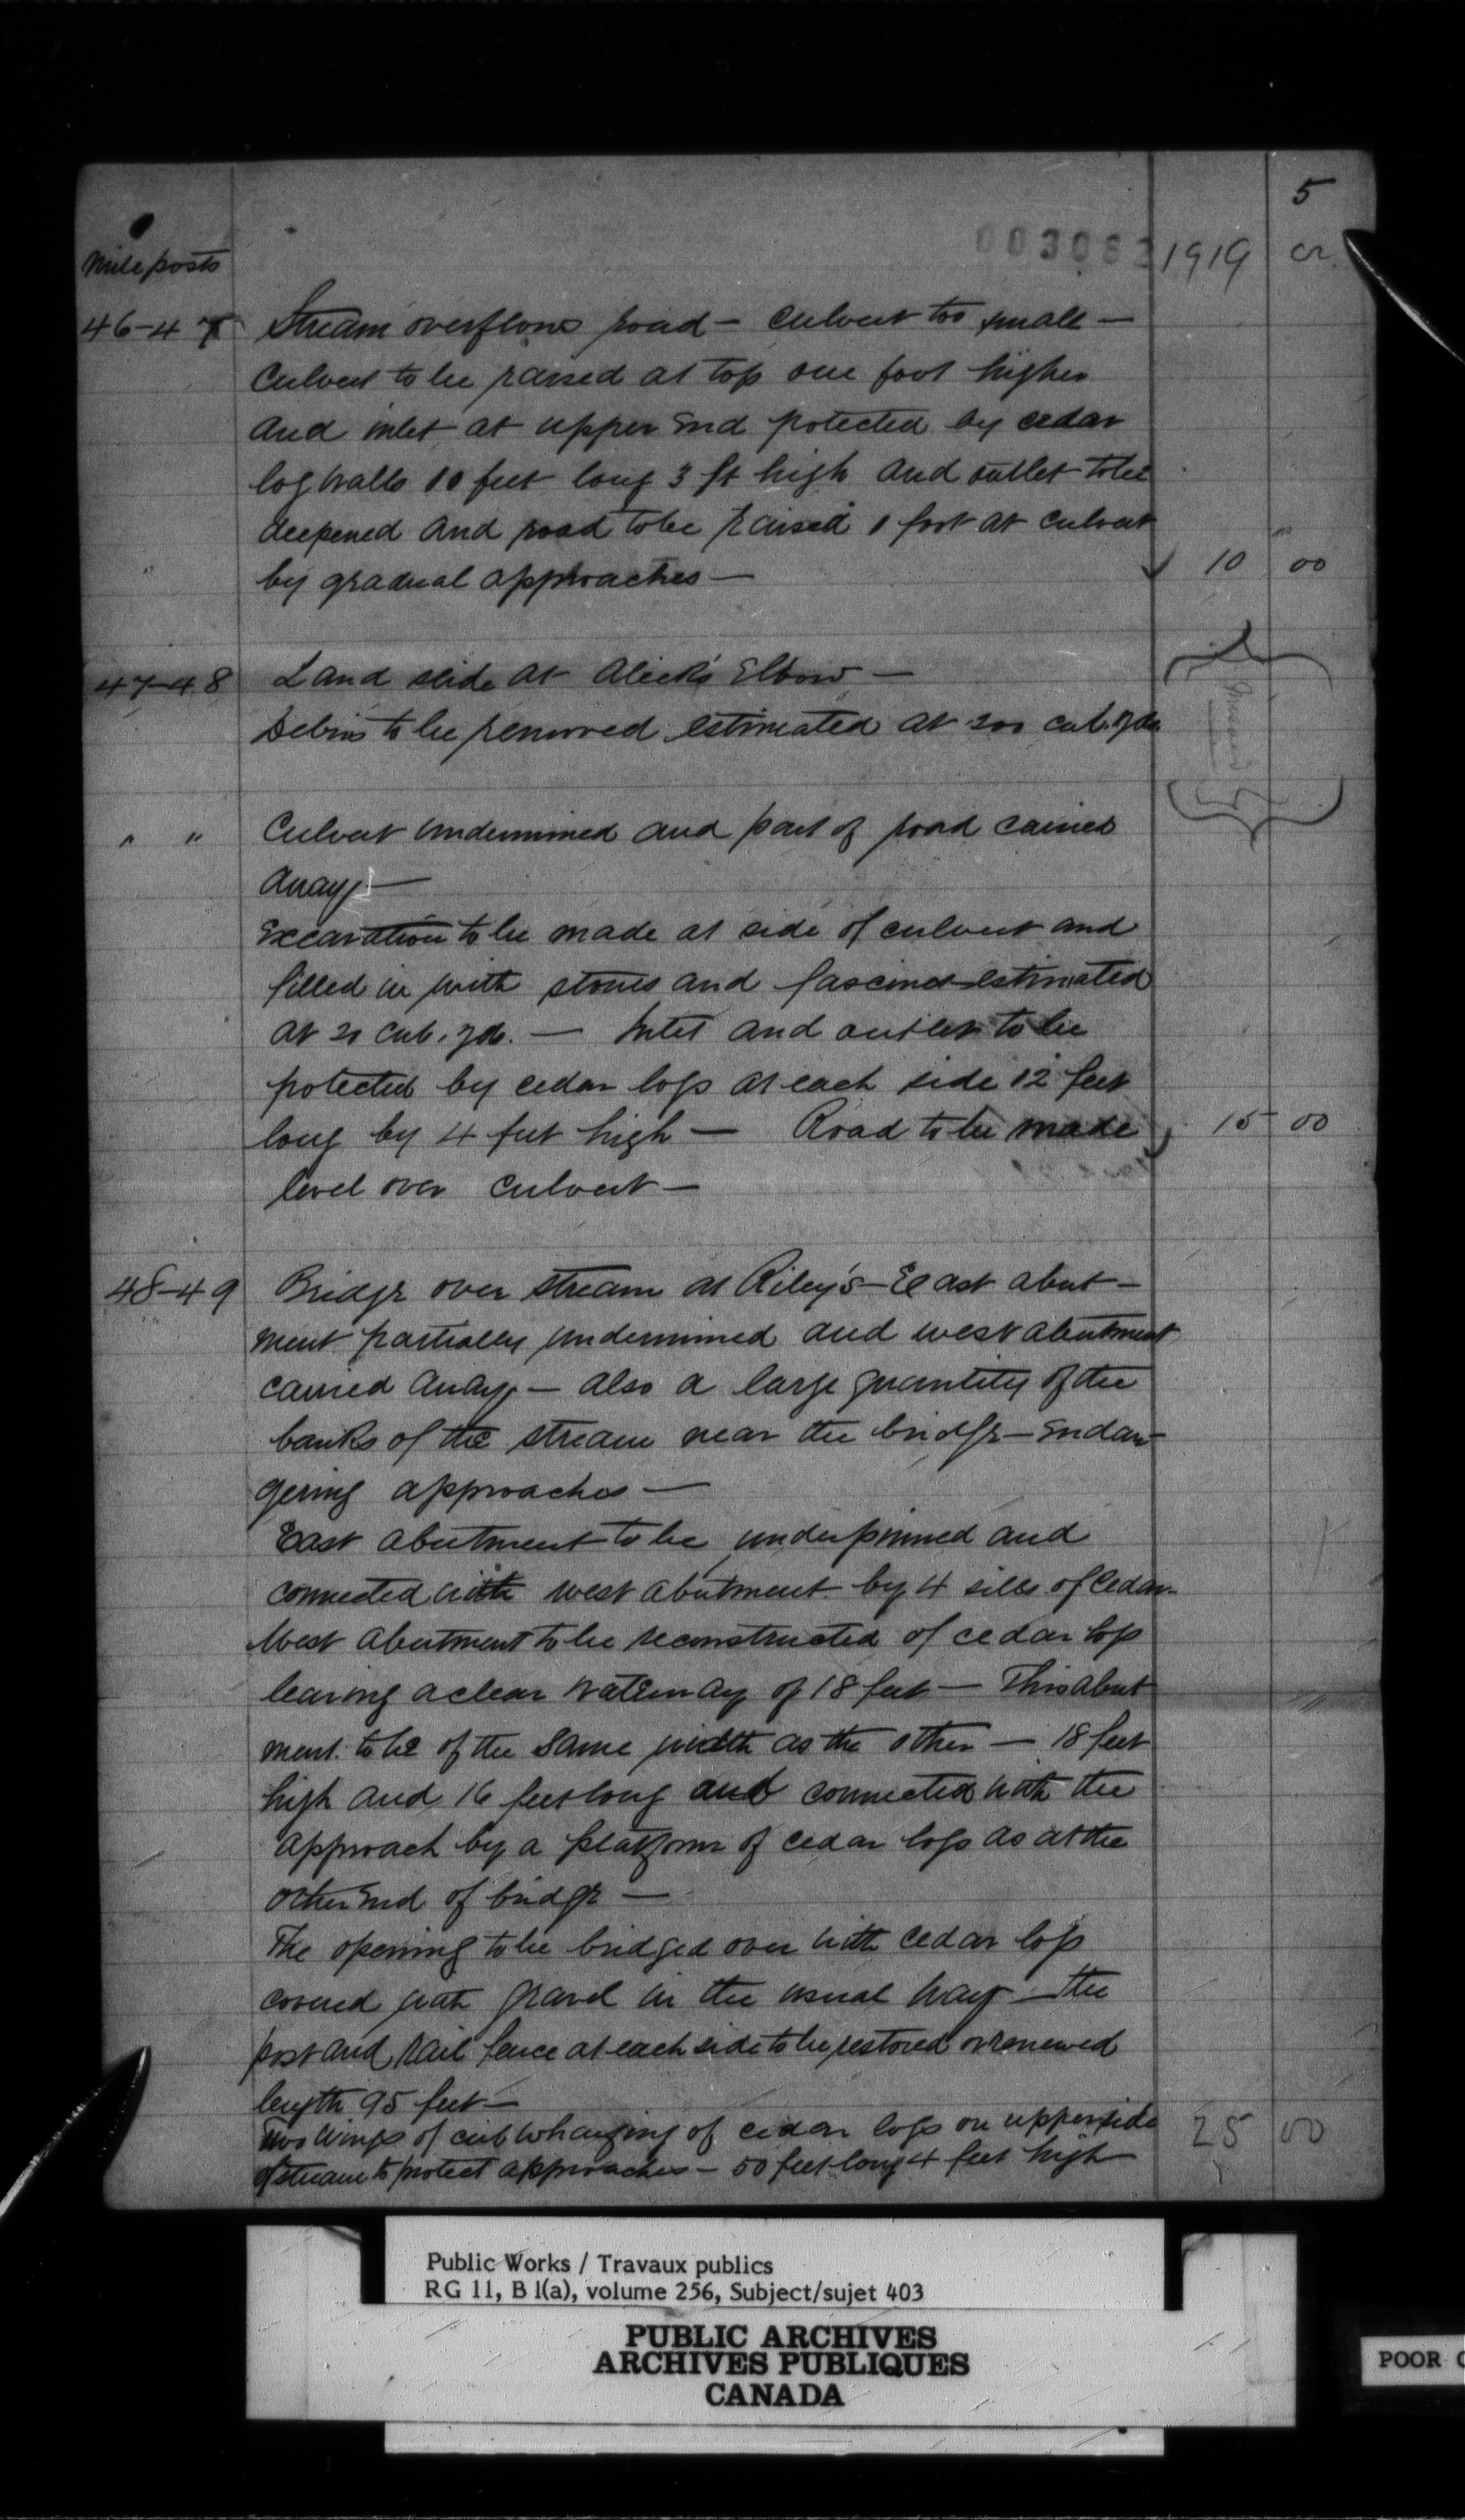 5
003082
1919
Mile posts
46-47 Stream overflows road — culvert too small —
Culvert to be raised at top one foot higher
and inlet at upper end protected by cedar
log walls 10 feet long 3 ft high and outlet to be
deepened and road to be raised 1 foot at culvert
by gradual approaches — 10 00
47-48 Land slide at Aleck's Elbow —
Debris to be removed estimated at 200 cub. yds.
" " Culvert undermined and part of road carried
away —
Excavation to be made at side of culvert and
filled in with stones and fascines estimated
at 20 cub. yds. — Inlet and outlet to be
protected by cedar logs at each side 12 feet
long by 4 feet high — Road to be made 15 00
level over culvert —
48-49 Bridge over stream at Riley's — East abut-
ment partially undermined and west abutment
carried away — also a large quantity of the
banks of the stream near the bridge — Endan-
gering approaches —
East abutment to be underpinned and
connected with west abutment by 4 sills of cedar
West abutment to be reconstructed of cedar logs
leaving a clear waterway of 18 feet — This abut
ment to be of the same width as the other — 18 feet
high and 16 feet long and connected with the
approach by a platform of cedar logs as at the
other end of bridge —
The opening to be bridged over with cedar logs
covered with gravel in the usual way — the
post and rail fence at each side to be restored or renewed
length 95 feet —
Two wings of crib wharfing of cedar logs on upper side 25 00
of stream to protect approaches — 50 feet long 4 feet high
Public Works / Travaux publics
RG 11, B 1(a), volume 256, Subject/sujet 403
PUBLIC ARCHIVES
ARCHIVES PUBLIQUES
CANADA
POOR